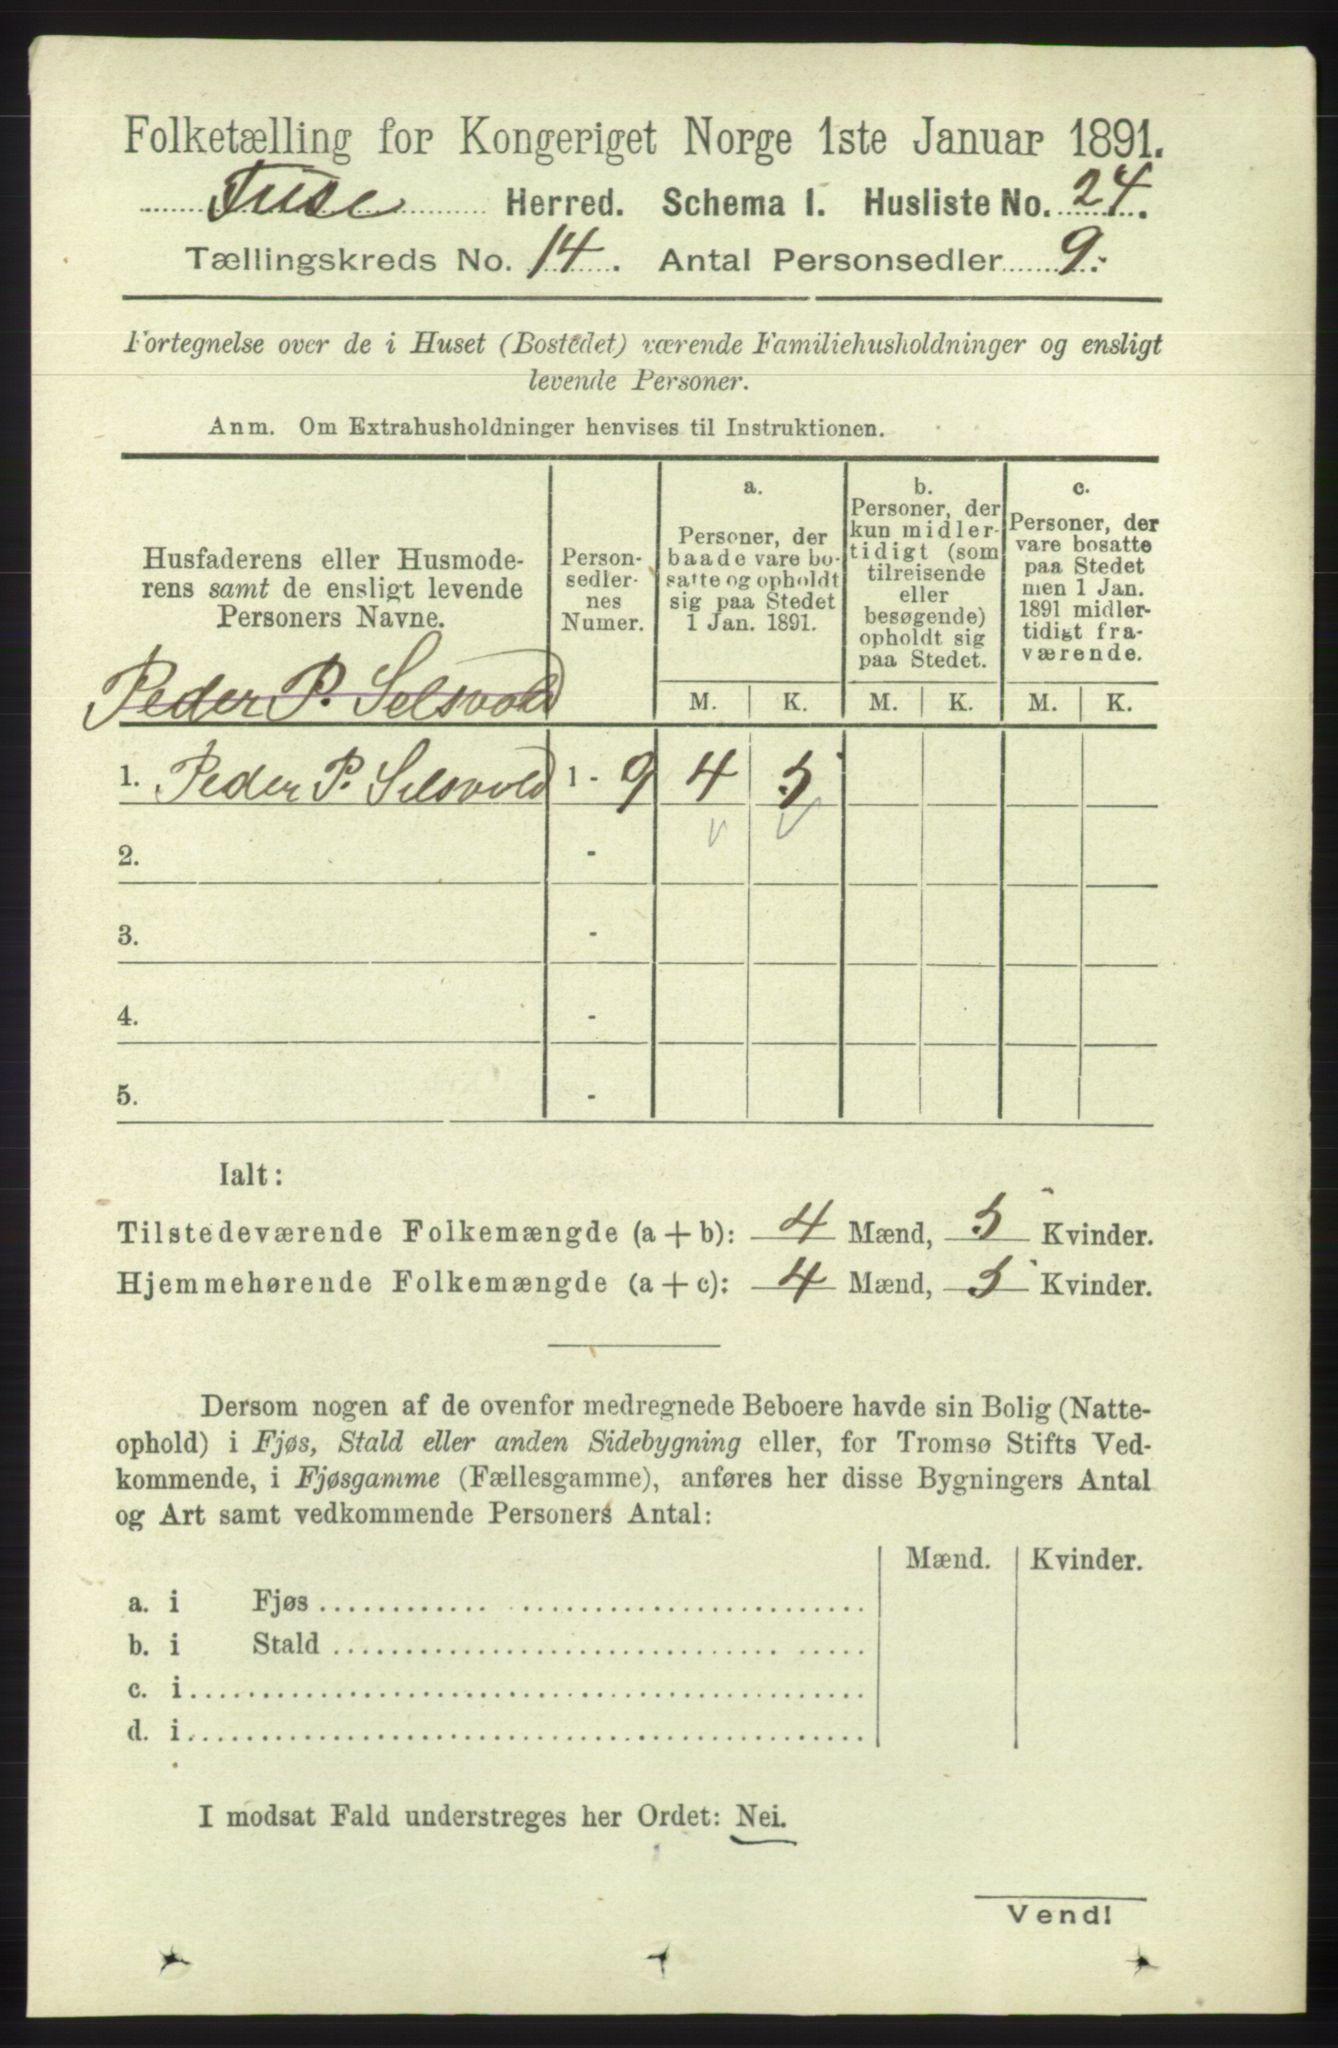 Folketælling for Kongeriget Norge 1ste Januar 1891.
Fuse Herred. Schema I. Husliste No. 24.
Tællingskreds No. 14. Antal Personsedler 9.
Fortegnelse over de i Huset (Bostedet) værende Familiehusholdninger og ensligt
levende Personer.
Anm. Om Extrahusholdninger henvises til Instruktionen.
Husfaderens eller Husmode-
rens samt de ensligt levende
Personers Navne.
Person-
sedler-
nes
Numer.
a.
Personer, der
baade vare bo-
satte og opholdt
sig paa Stedet
1 Jan. 1891.
b.
Personer, der
kun midler-
tidigt (som
tilreisende
eller
besøgende)
opholdt sig
paa Stedet.
c.
Personer, der
vare bosatte
paa Stedet
men 1 Jan.
1891 midler-
tidigt fra-
værende.
Peder P. Selsvold
M. K. M. K. M. K.
1. Peder P. Selsvold 1 - 9 4 5
2. -
3. -
4. -
5. -
Ialt:
Tilstedeværende Folkemængde (a + b): 4 Mænd, 5 Kvinder.
Hjemmehørende Folkemængde (a + c): 4 Mænd, 5 Kvinder.
Dersom nogen af de ovenfor medregnede Beboere havde sin Bolig (Natte-
ophold) i Fjøs, Stald eller anden Sidebygning eller, for Tromsø Stifts Ved-
kommende, i Fjøsgamme (Fællesgamme), anføres her disse Bygningers Antal
og Art samt vedkommende Personers Antal:
Mænd. Kvinder.
a. i Fjøs
b. i Stald
c. i
d. i
I modsat Fald understreges her Ordet: Nei.
Vend!